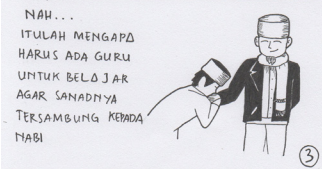 NAH...
ITULAH MENGAPA
HARUS ADA GURU
UNTUK BELAJAR
AGAR SANADNYA
TERSAMBUNG KEPADA
NABI
3